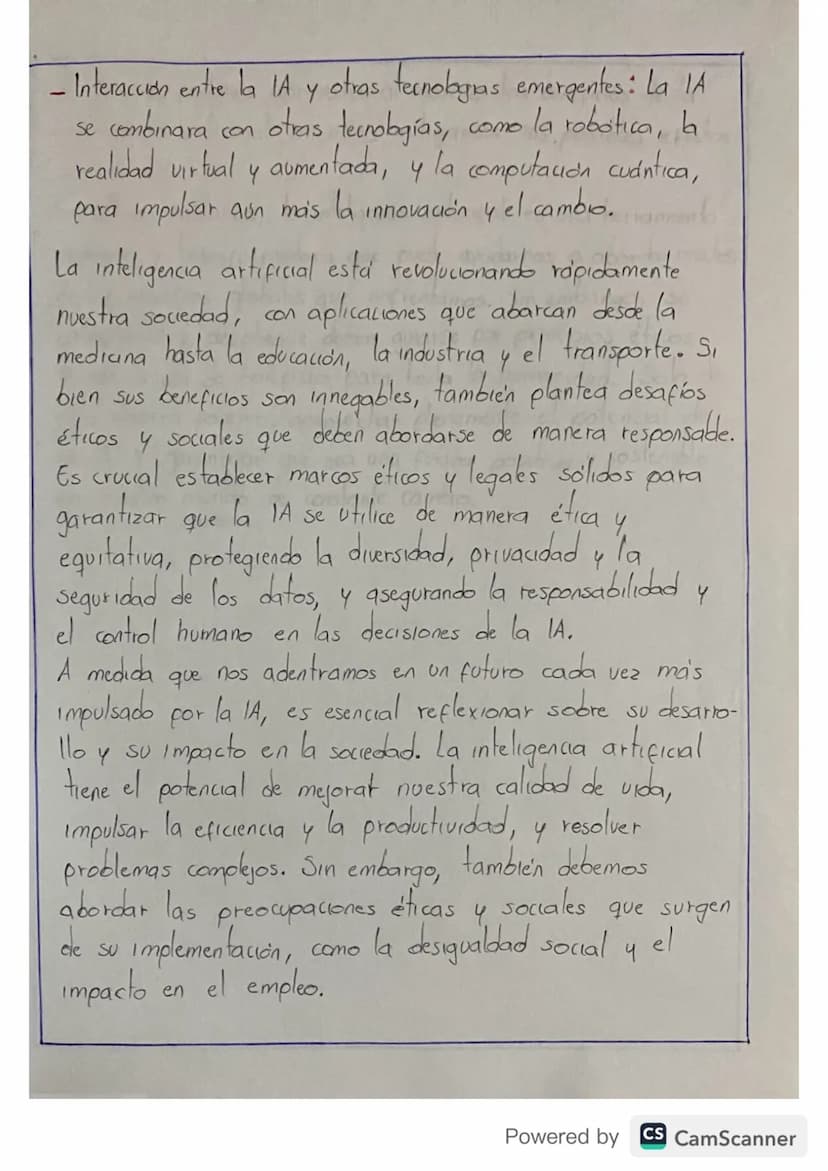 - Interacción entre la IA y otras tecnologías emergentes: La IA
se combinara con otras tecnologías, como la robótica, la
realidad virtual y aumentada, y la computación cuántica,
para impulsar aún más la innovación y el cambio.
La inteligencia artificial está revolucionando rápidamente
nuestra sociedad, con aplicaciones que abarcan desde la
medicina hasta la educación, la industria y el transporte. Si
bien sus beneficios son innegables, también plantea desafíos
éticos y sociales que deben abordarse de manera responsable.
Es crucial establecer marcos éticos y legales sólidos para
garantizar que la IA se utilice de manera ética y
equitativa, protegiendo la diversidad, privacidad y la
seguridad de los datos, y asegurando la responsabilidad y
el control humano en las decisiones de la IA.
A medida que nos adentramos en un futuro cada vez más
impulsado por la IA, es esencial reflexionar sobre su desarro-
llo y su impacto en la sociedad. La inteligencia artificial
tiene el potencial de mejorar nuestra calidad de vida,
impulsar la eficiencia y la productividad, y resolver
problemas complejos. Sin embargo, también debemos
abordar las preocupaciones éticas y sociales que surgen
de su implementación, como la desigualdad social y el
impacto en el empleo.
Powered by CS CamScanner